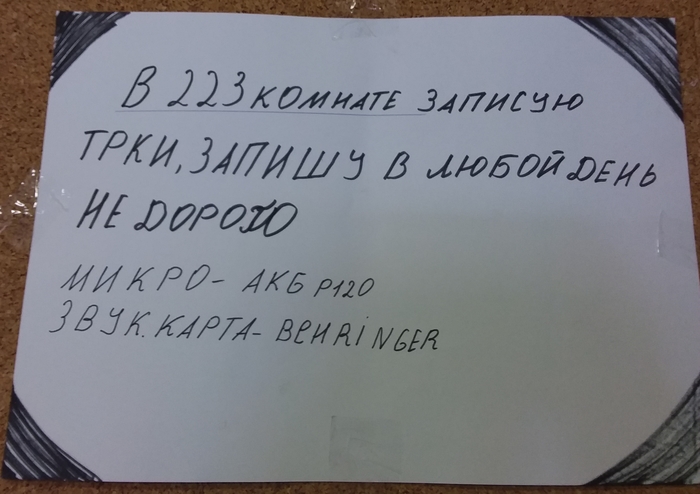 В 223 КОМНАТЕ ЗАПИСУЮ
ТРКИ, ЗАПИШУ В ЛЮБОЙ ДЕНЬ
НЕ ДОРОХО
МИКРО- АКБ P120
ЗВУК. КАРТА- BEHRiNGER